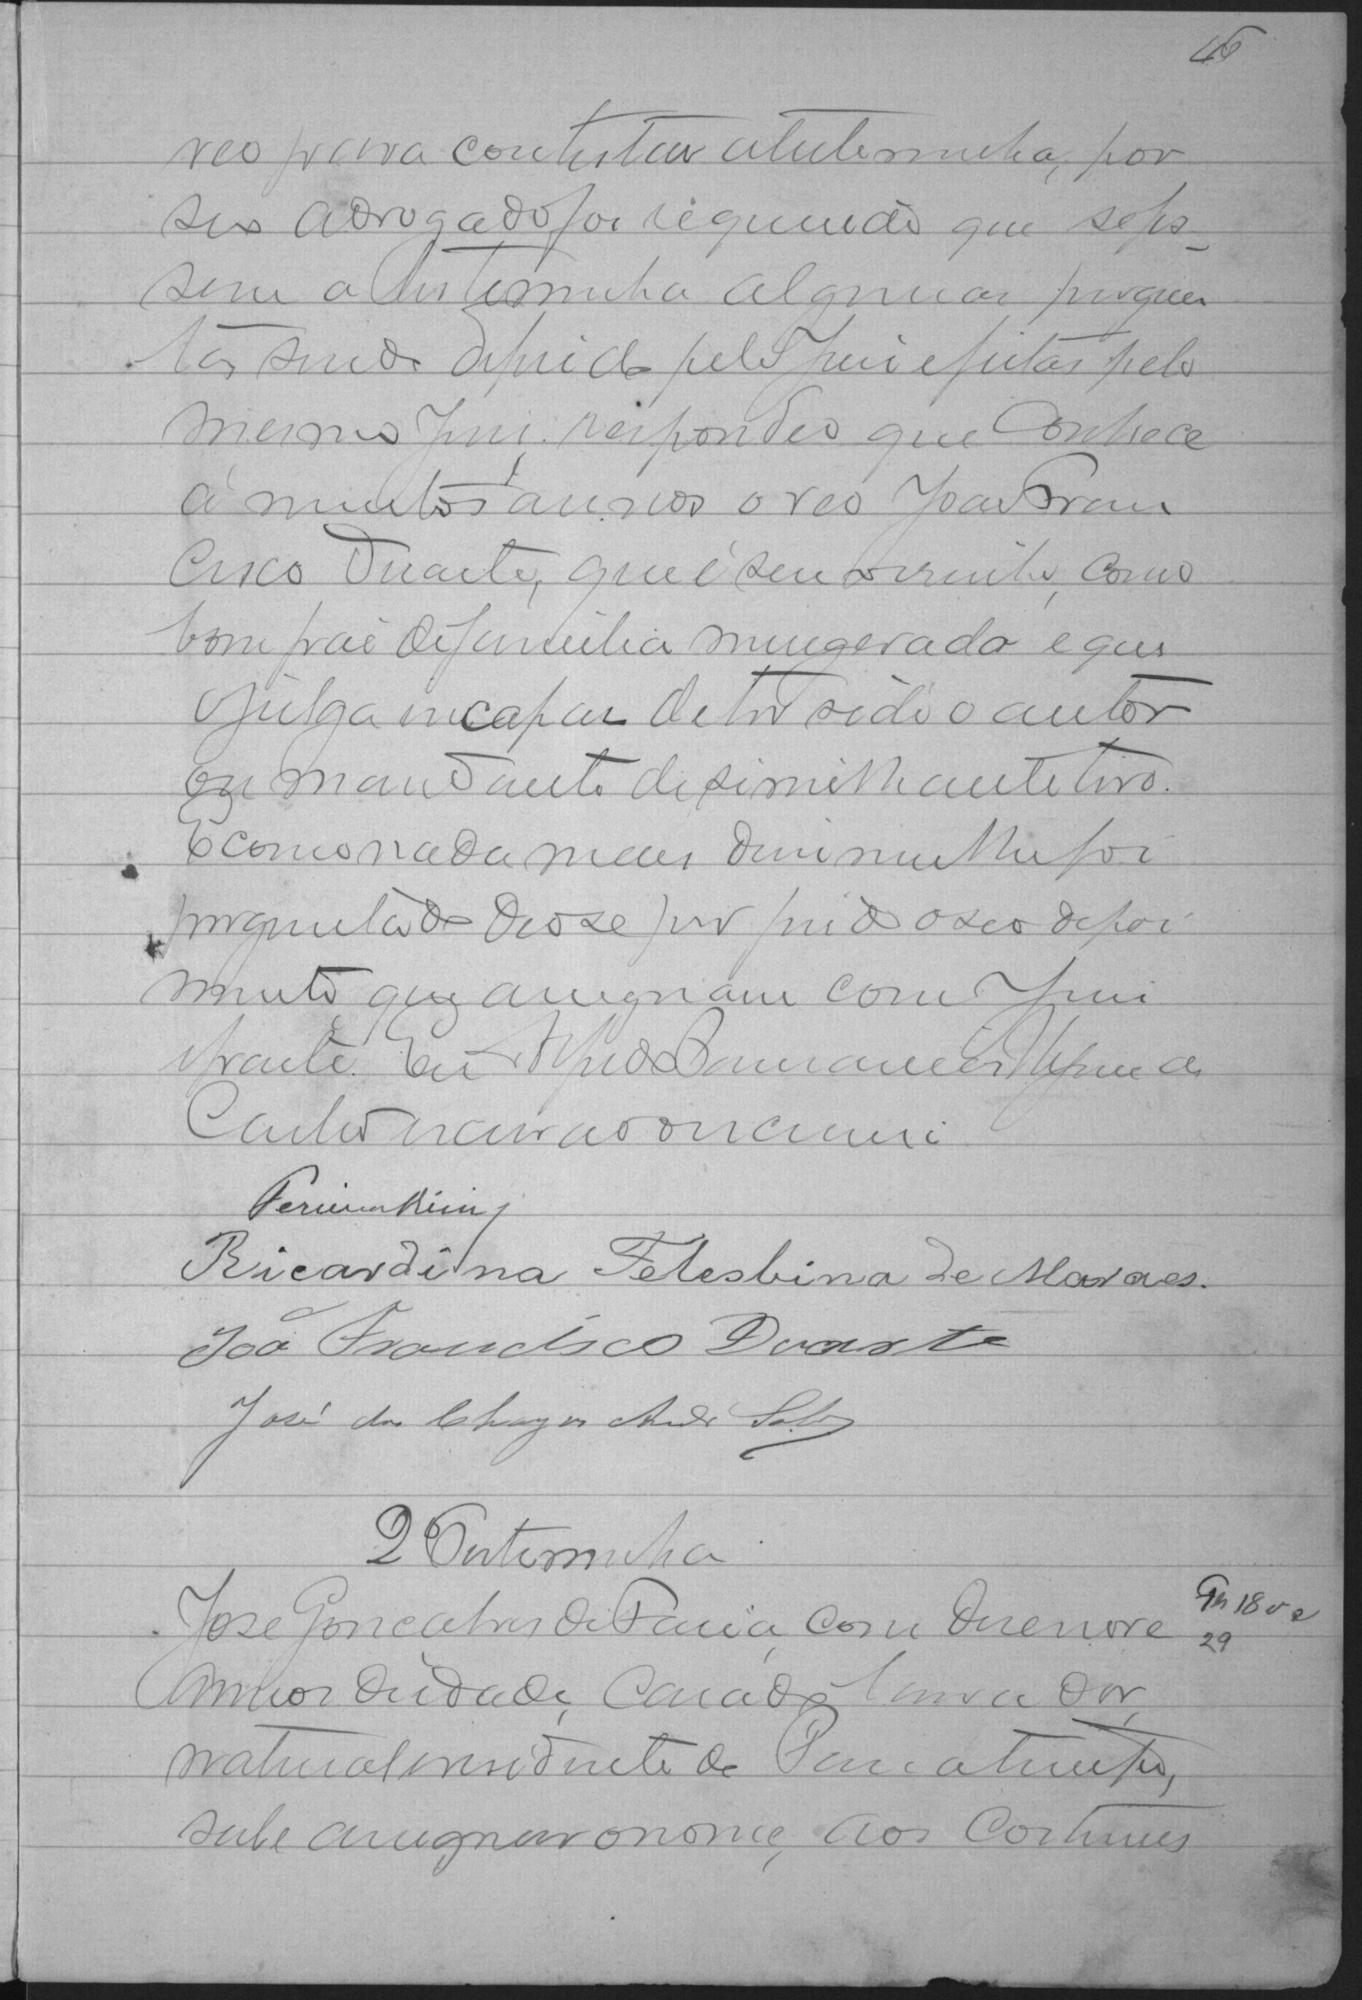 46
reo para contestar a testemunha, por
seo advogado foi requerido que se fis-
sem a testemunha algumas pergun
tas sendo deferido pelo Juiz e feitas pelo
mesmo Juiz, respondeo que Conhece
á muitos annos o reo João Fran
cisco Duarte, que é seu visinho, como
bom pai de familia morigerado e que
o julga incapaz de ter sido o autor
ou mandante de similhante tiro.
E como nada mais disse nem lhe foi
perguntado deo-se por findo o seo depoi
mento que assignam com Juiz
e parte. Eu Alfredo
Castro escrivão o escrevi
Ricardina Telesbina de Moraes.
João Francisco Duarte
José das Chagas Andr
2ª Testemunha
José Gonçalves de Faria, com desenove
annos de idade, casado, lavrador,
natural e residente de
sabe assignar o nome, aos costumes
18 v e
29